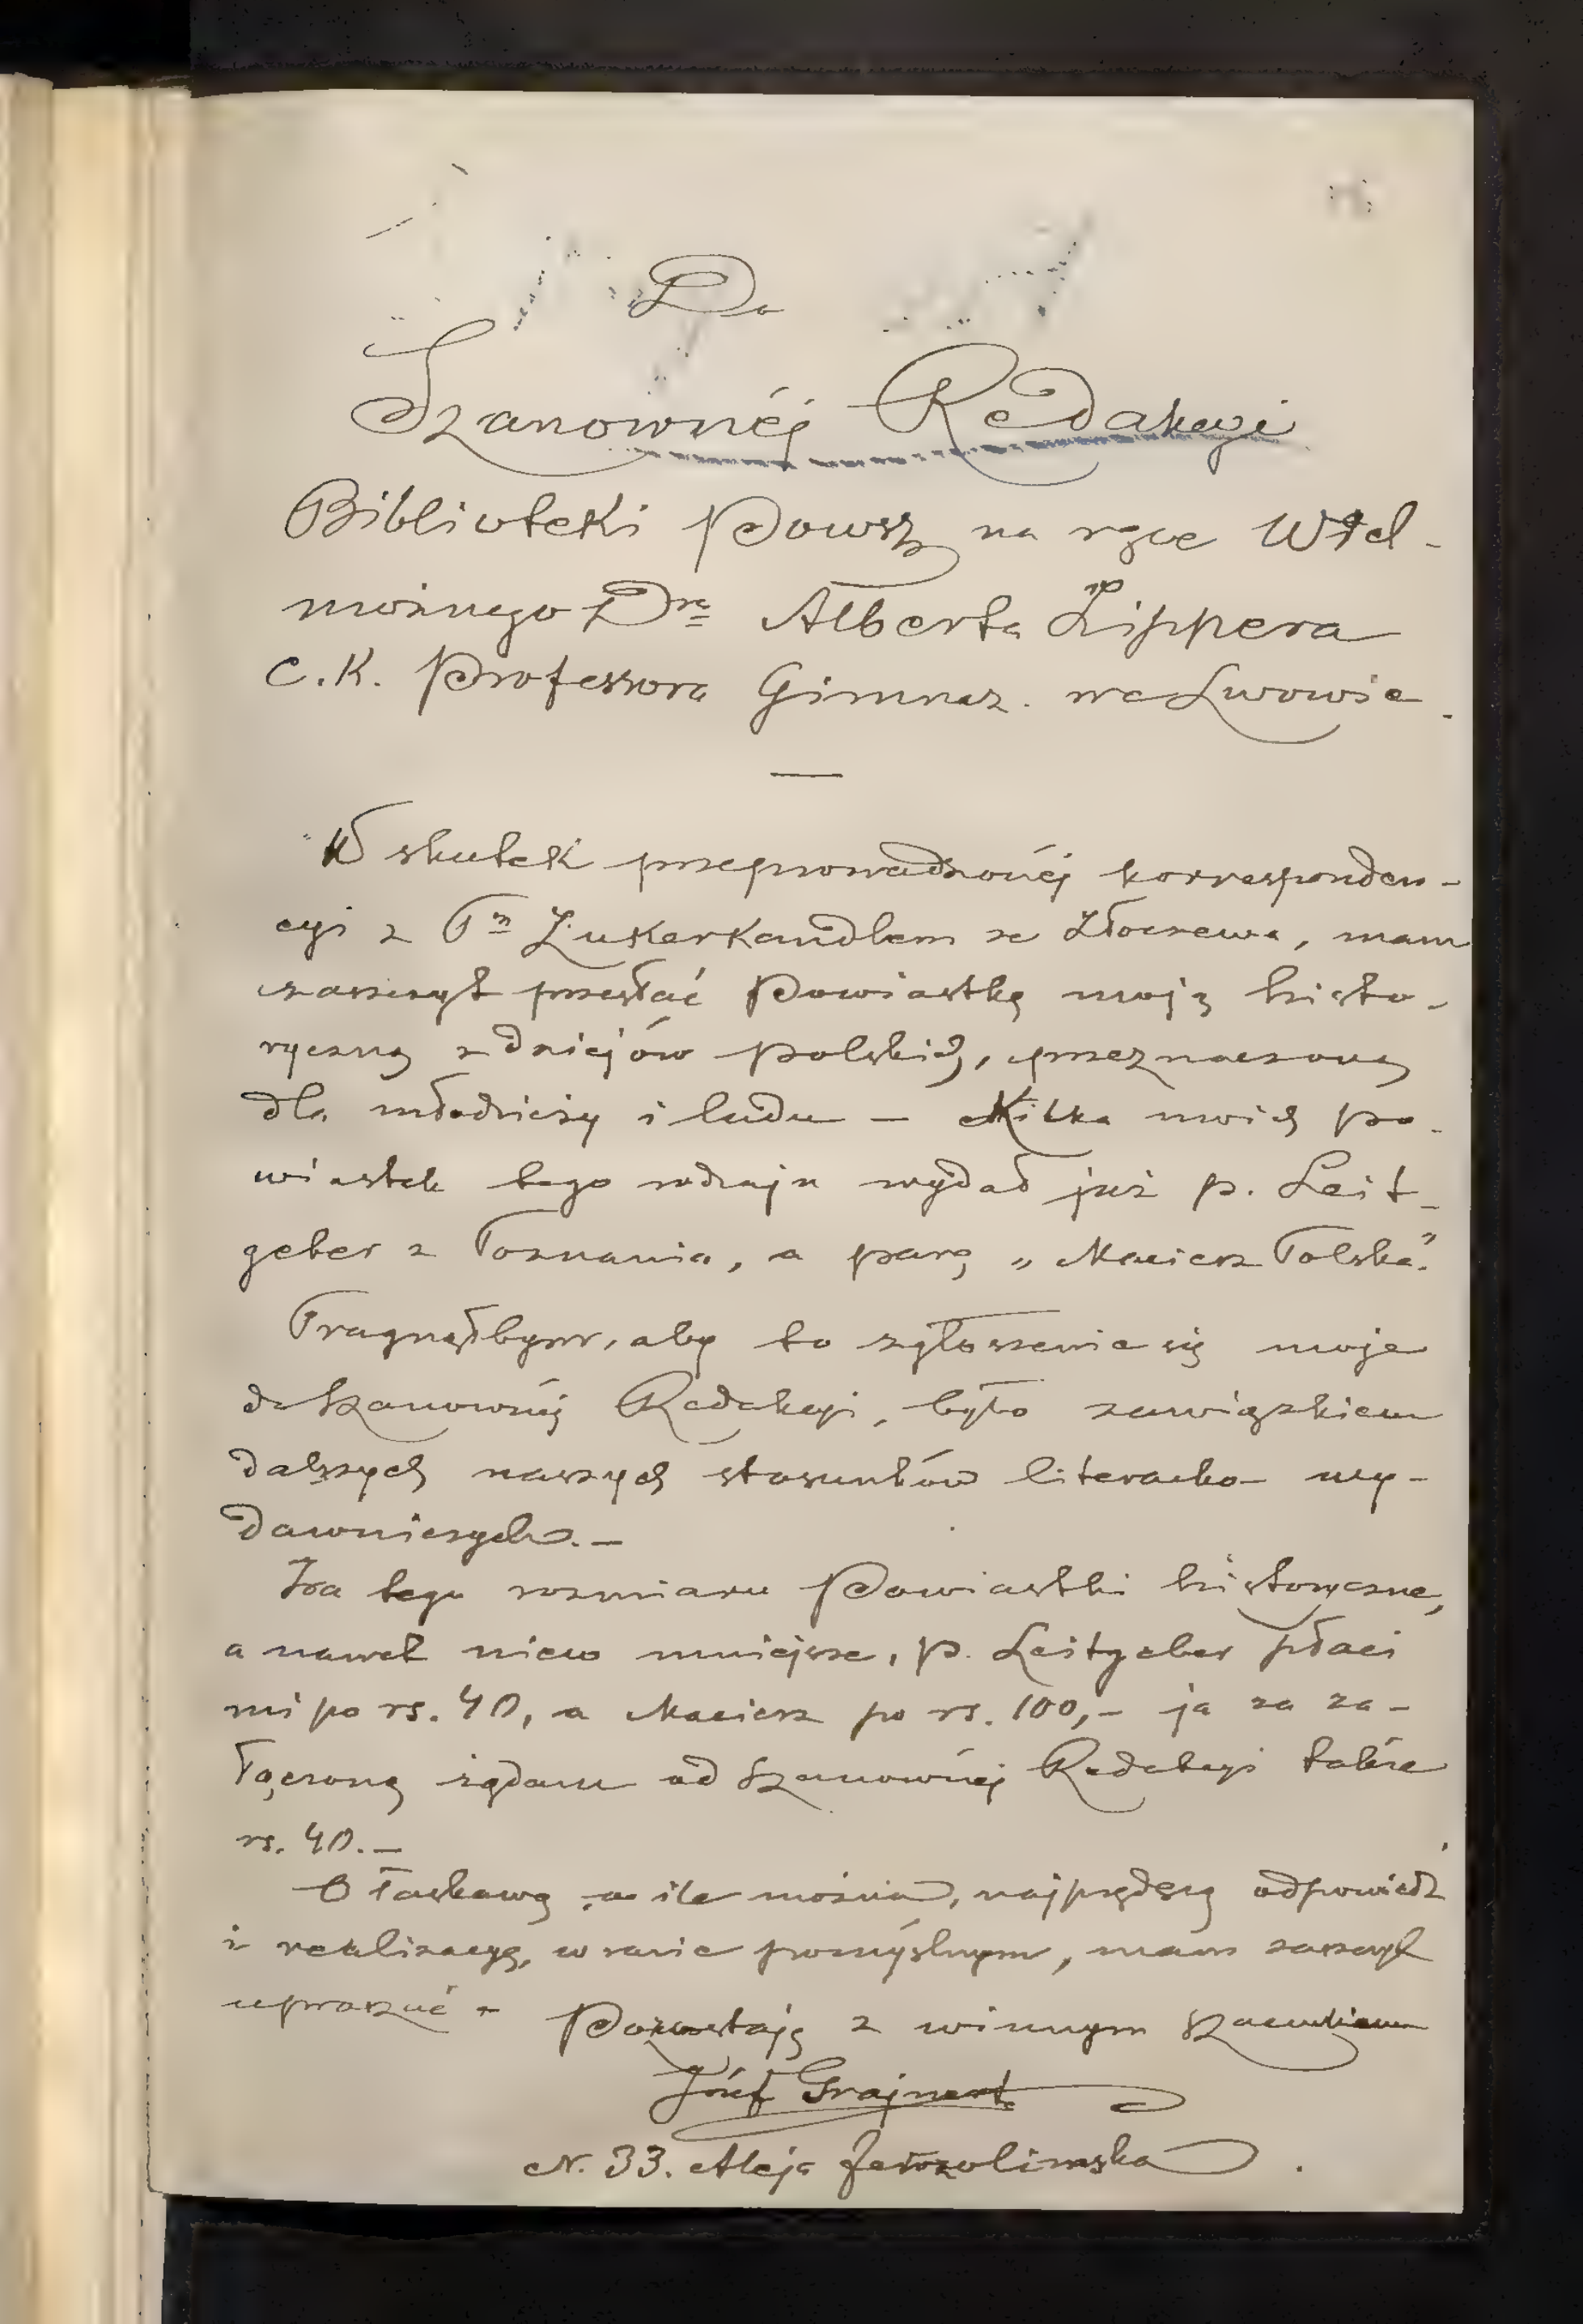 Do
Szanownéj Redakcyi
Biblioteki Powsz na ręce Wiel-
możnego Dra Alberta Zippera
C. K. Professora Gimnaz. we Lwowie.
W skutek przeprowadzonéj korresponden-
cyi z Pm Zukerkandlem ze Złoczewa, mam
zaszczyt przesłać Powiastkę moją histo-
ryczną z dziejów polskich, przeznaczoną
dla młodzieży i ludu — Kilka moich po-
wiastek tego rodzaju wydał już p. Leit-
geber z Poznania, a parę „Macierz Polska".
Pragnąłbym, aby to zgłoszenie się moje
do Szanownéj Redakcyi, było zawiązkiem
dalszych naszych stosunków literacko-wy-
dawniczych. —
Za tego rozmiaru Powiastki historyczne,
a nawet nieco mniejsze, p. Leitgeber płaci
mi po rs. 40, a Macierz po rs. 100, — ja za za-
łączoną żądam od Szanownéj Redakcyi także
rs. 40. —
O łaskawą a ile można, najprędszą odpowiedź
i realizacyę, w razie pomyślnym, mam zaszczyt
upraszać — Pozostaję z winnym szacunkiem
Józef Grajnert
N. 33. Aleja Jerozolimska.